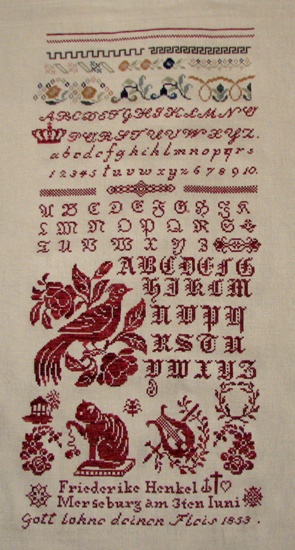 ABCDEFGHIJKLMNO
PQRSTUVWXYZ.
abcdefghiklmnopqrs
12345 tuvwxyz 678910.
ABCDEFGHIK
LMNOPQRS
TUVWXYZ
ABCDEFG
HIKLM
NOPQ
RSTU
VWXYZ
Friederike Henkel
Merseburg am 3ten Iuni
Gott lohne deinen Fleis 1833.